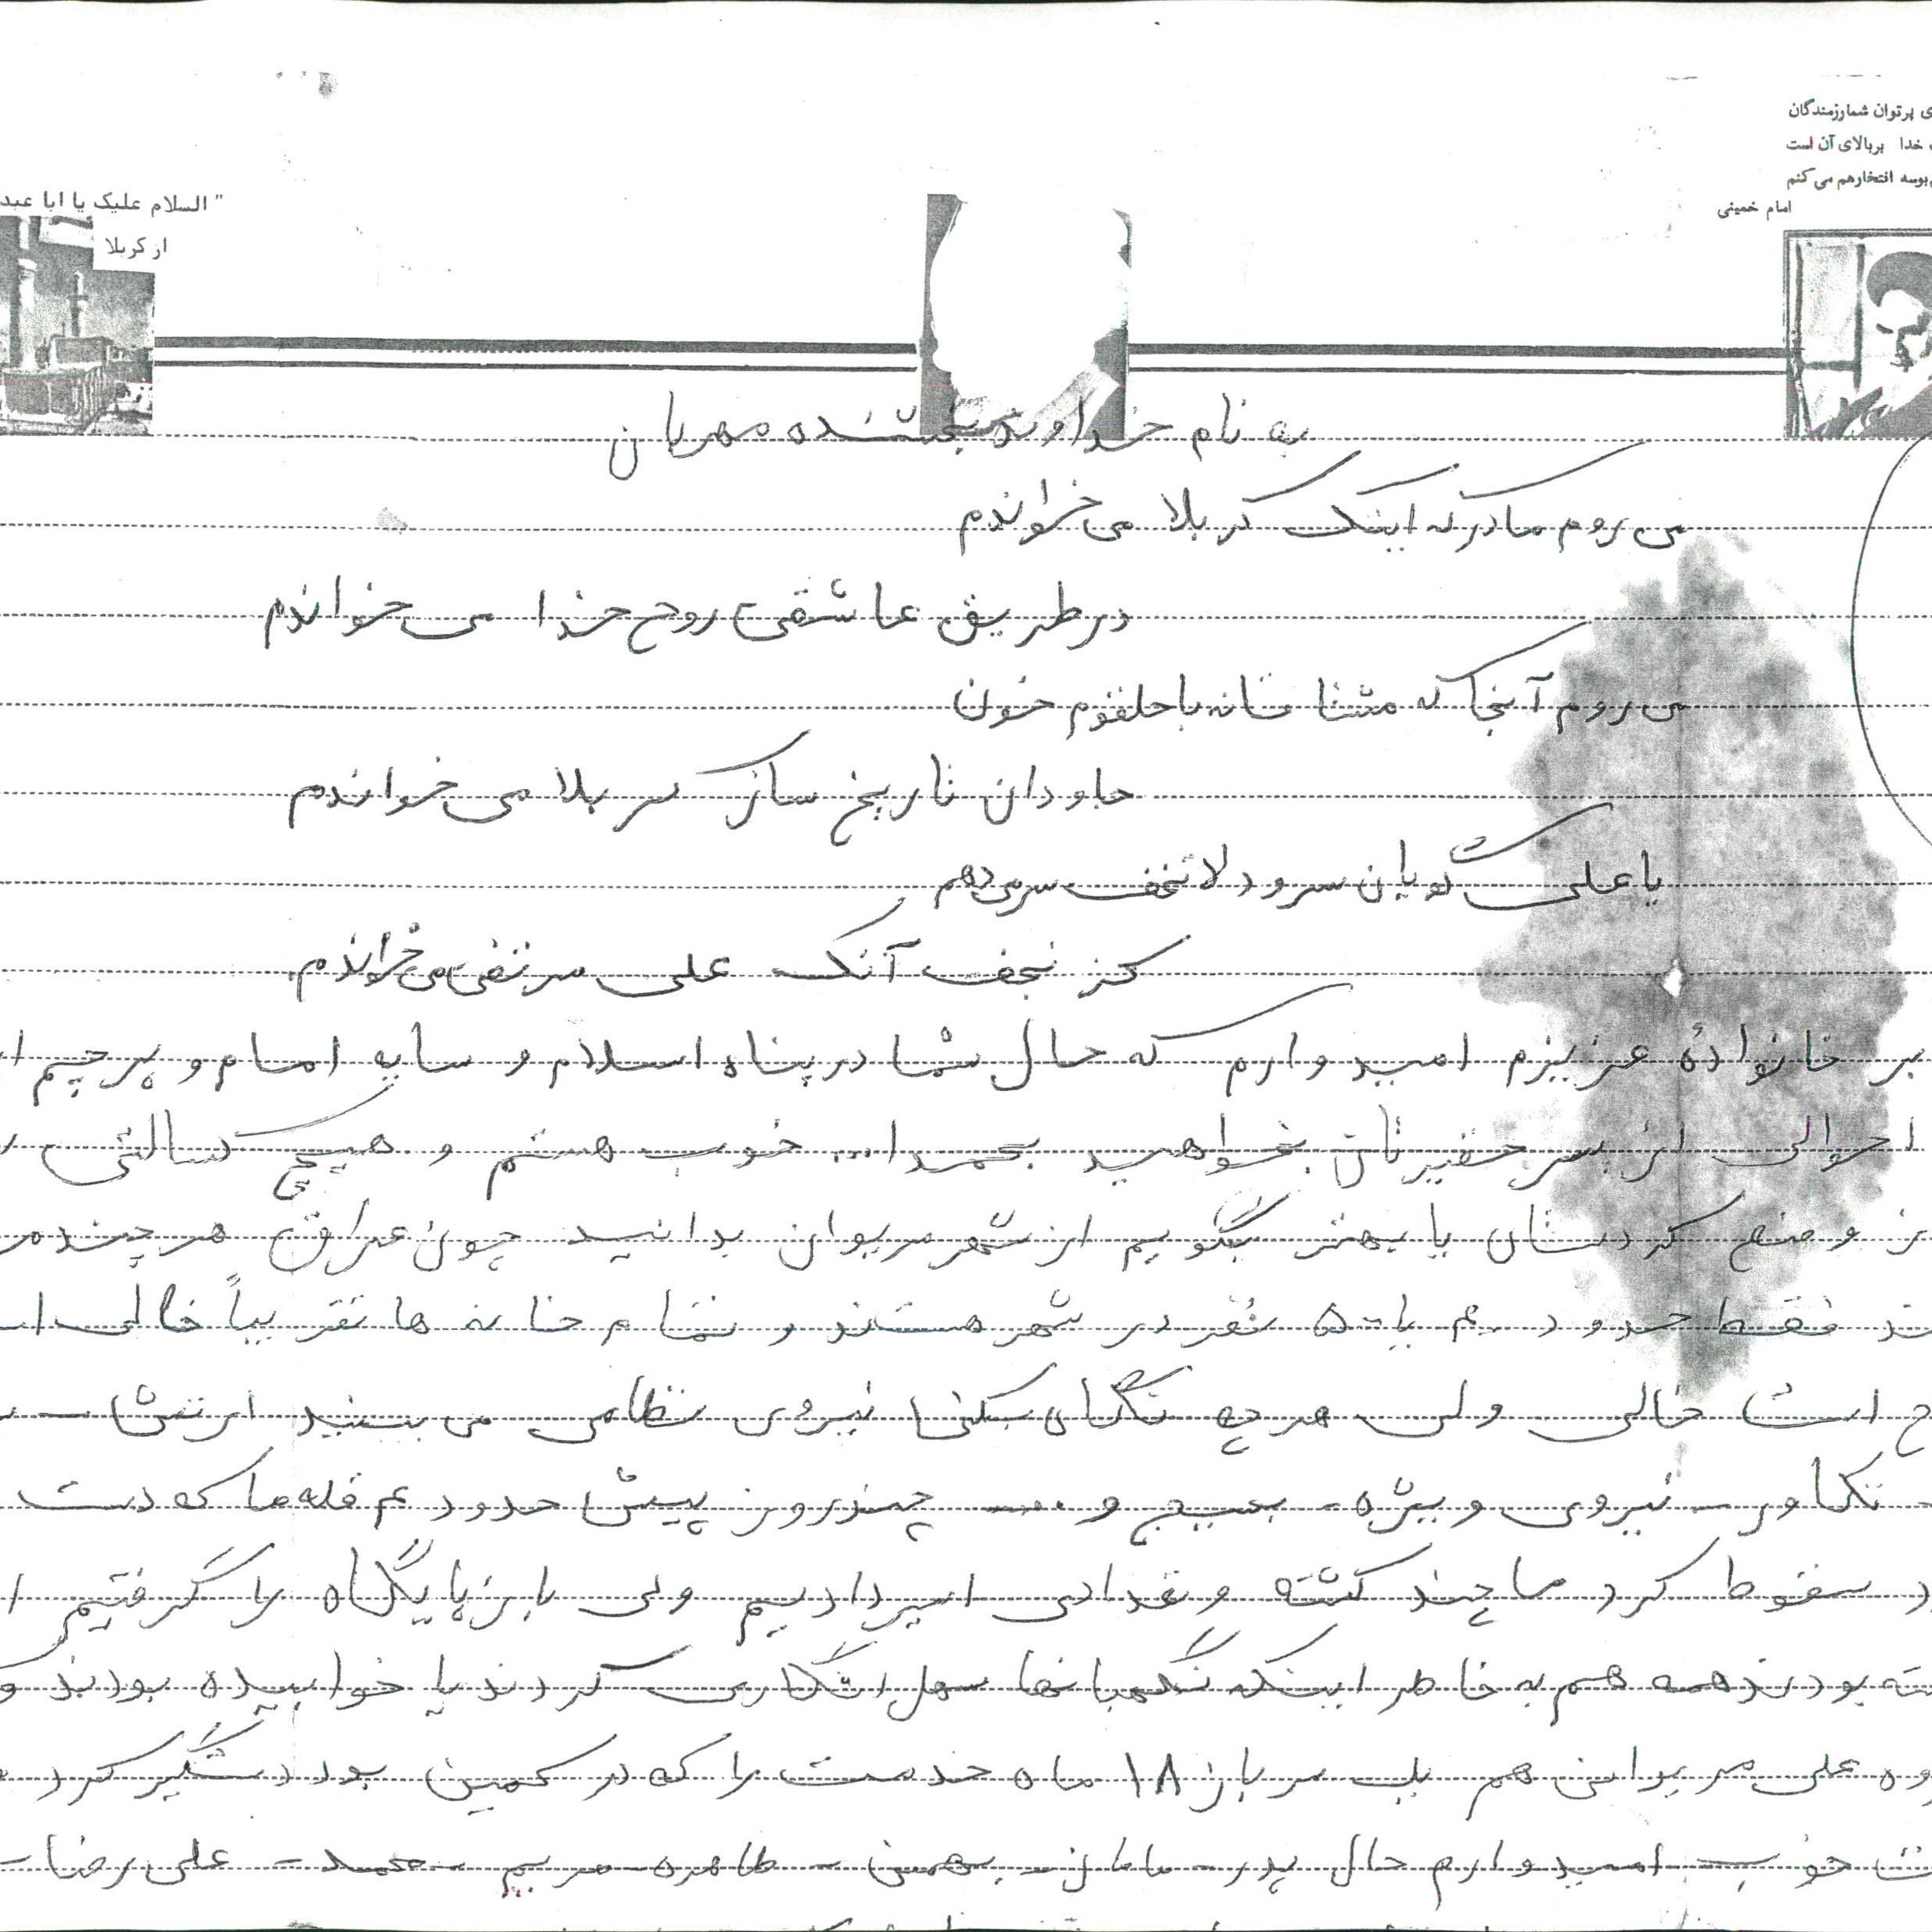 ی پرتوان شمارزمندگان
خدا بربالای آن است
بوسه افتخارهم می کنم
امام خمینی
" السلام علیک یا ابا عبد
از کربلا
به نام خداوند بخشنده مهربان
می روم مادر که اینک کربلا می خواندم
در طریق عاشقی روح خدا می خواندم
می روم آنجا که مشتاقانه با حلقوم خون
جاودان تاریخ ساز کربلا می خواندم
یا علی گویان سرود لا تخف سر می دهم
کز نجف آنک علی مرتضی می خواندم.
بر خانوادهٔ عزیزم امیدوارم که حال شما در پناه اسلام و سایه امام و پرچم ا
احوالی از پسر حقیرتان بخواهید بحمدا... خوب هستم و هیچ کسالتی
وضع کردستان یا بهتر بگویم از شهر مریوان بدانید چون عراق هر چند
ند فقط حدود ۴۰ یا ۵۰ نفر در شهر هستند و تمام خانه ها تقریباً خالی ا
است خالی ولی هر چه نگاه بکنی نیروی نظامی می بینید ارتش
- تکاور - نیروی ویژه - بسیج و .... چند روز پیش حدود ۴ قله ما که دست
د سقوط کرد ما چند کشته و تعدادی اسیر دادیم ولی باز پایگاه را گرفتیم ا
ته بودند همه هم به خاطر اینکه نگهبانها سهل انگاری کردند یا خوابیده بودند و
وه علی مریوانی هم یک سرباز ۱۸ ماه خدمت را که در کمین بود دستگیر کرد
خوب امیدوارم حال پدر - مامان - بهمن - طاهره - مریم - محمد - علی رضا -